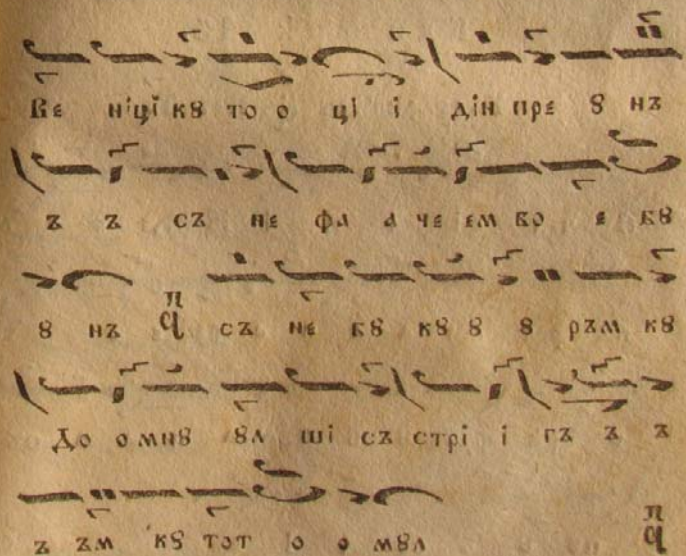 Ве ніцї кꙋ то о цї і дін пре ꙋ нъ
ъ ъ съ не фа а че ем во е бꙋ
ꙋ нъ п ч съ не бꙋ кꙋ ꙋ ꙋ ръм кꙋ
До о мнꙋ ꙋл ші съ стрі і гъ ъ ъ
ъ ъм кꙋ тот о о мꙋл п ч